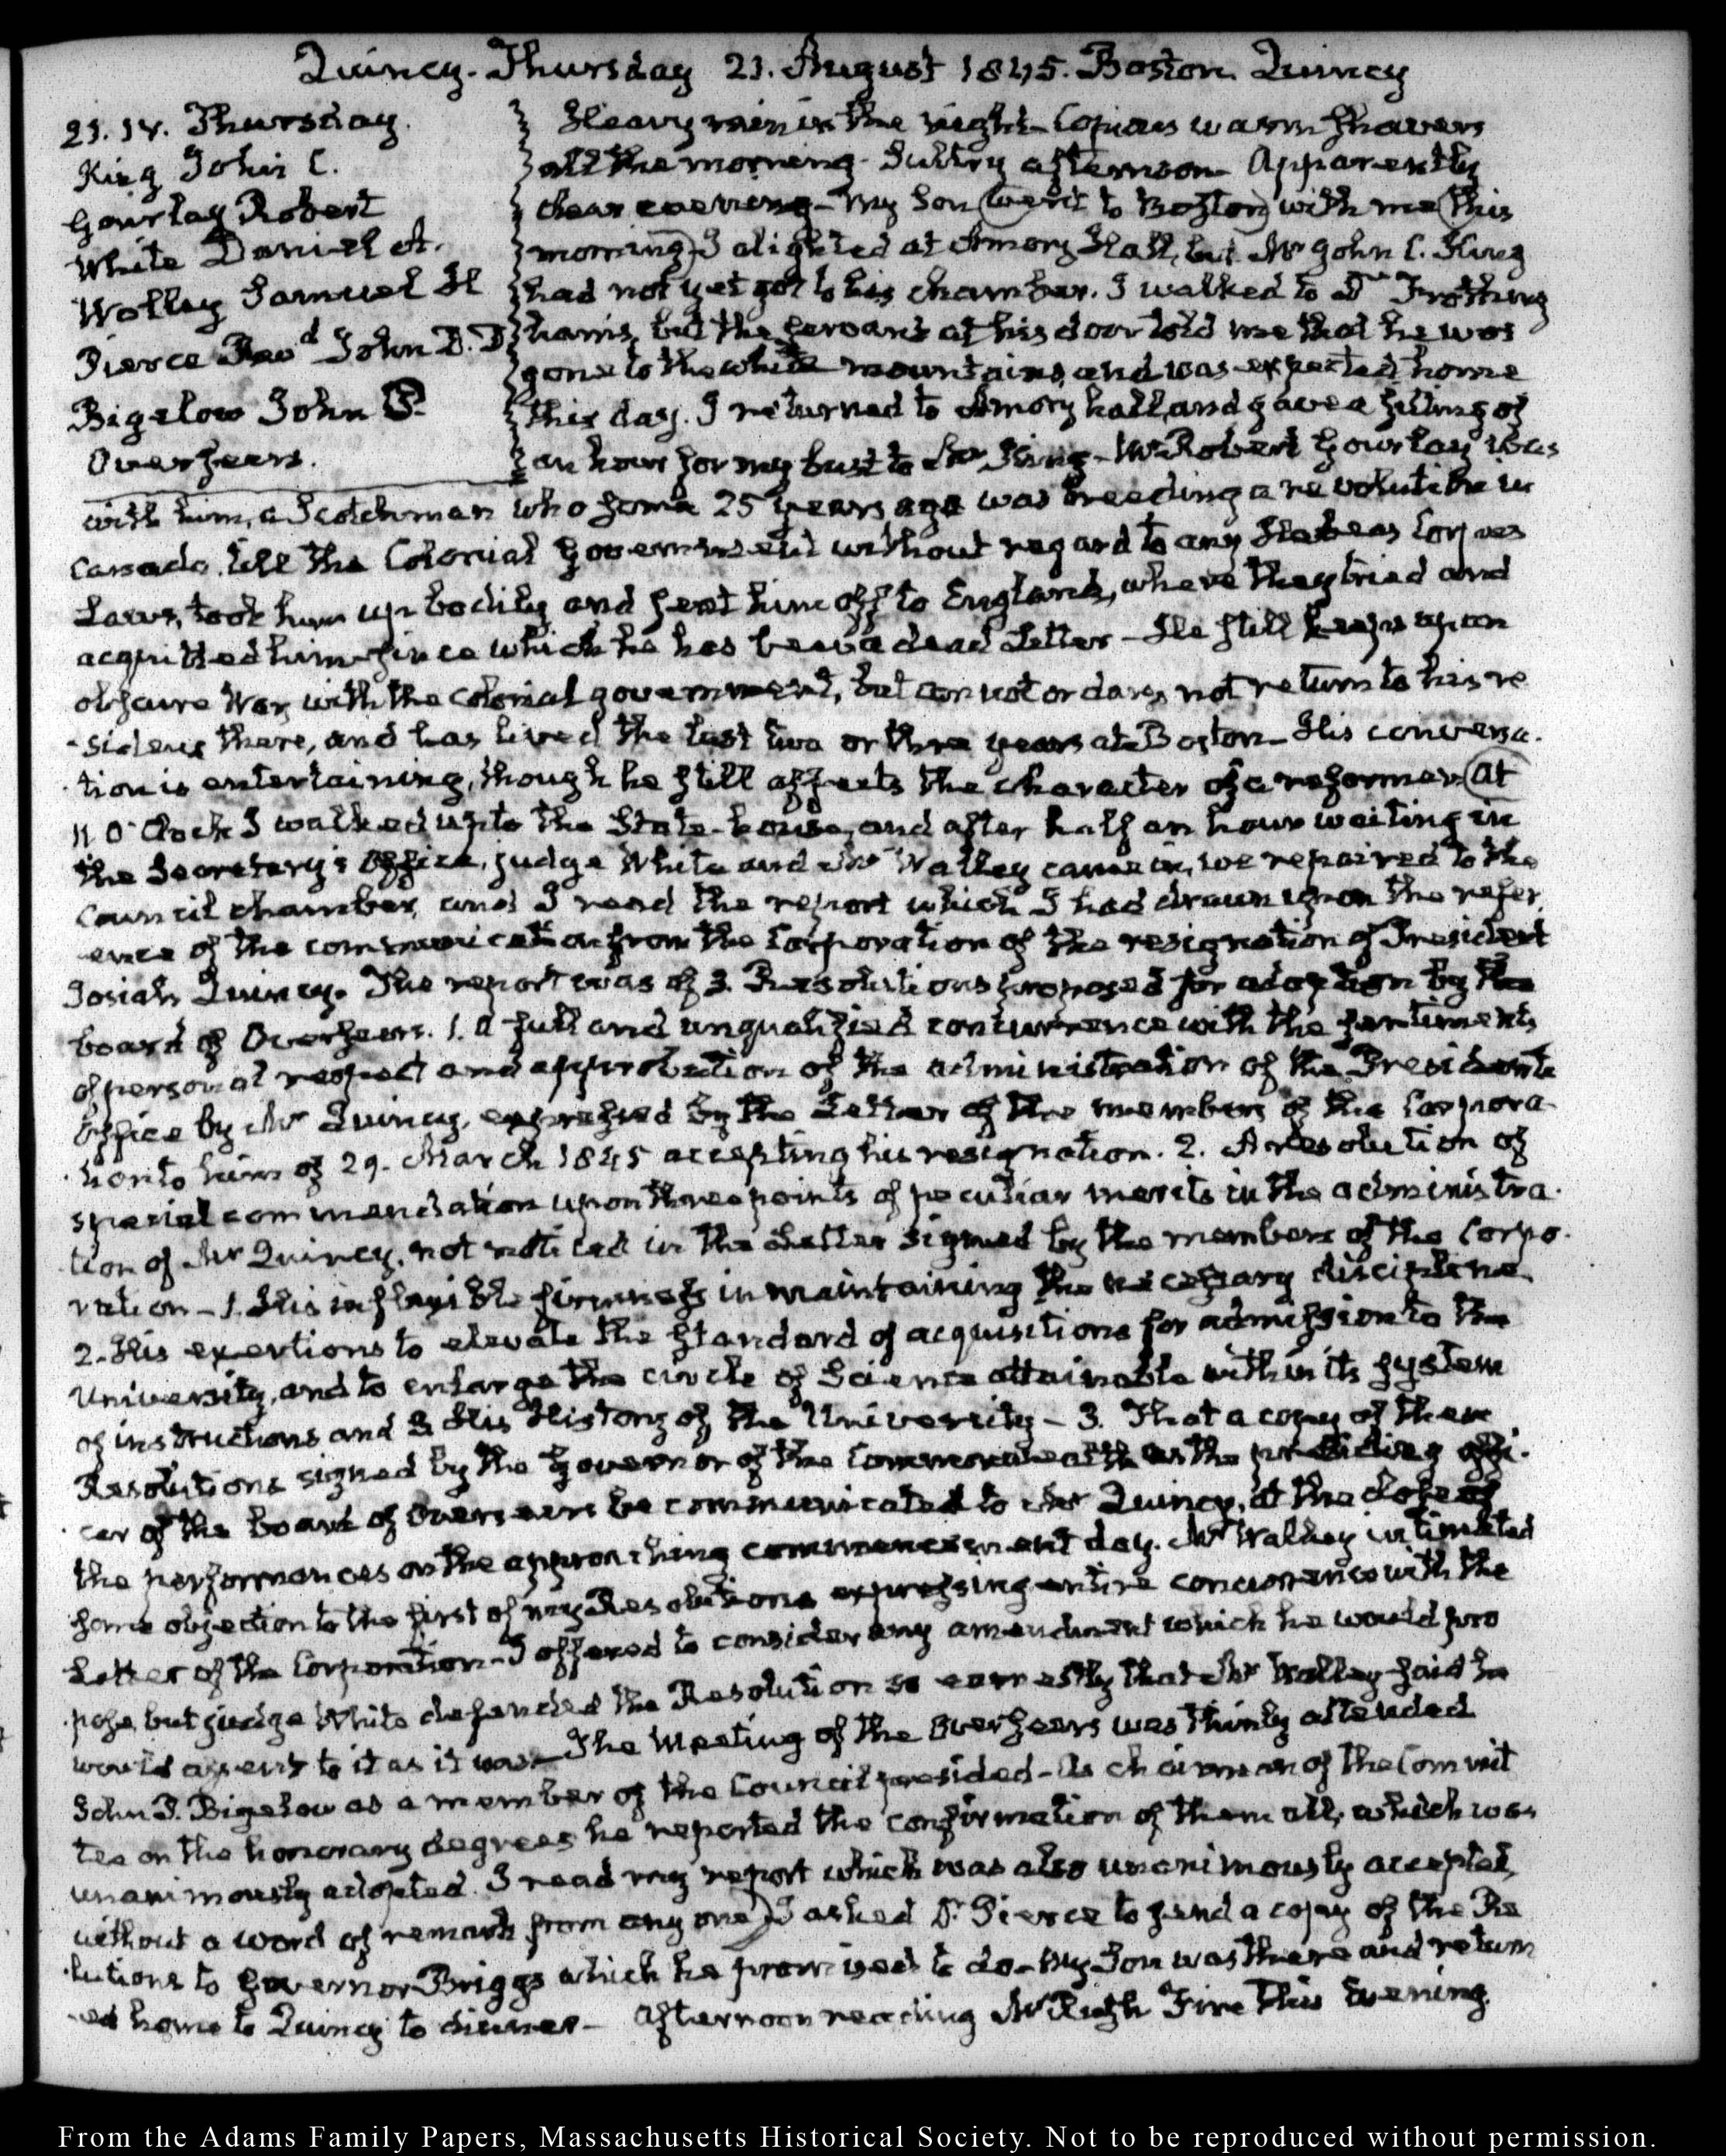 Quincy. Thursday 21. August 1845. Boston. Quincy
21. IV. Thursday.
King John C.
Gourlay Robert
White Daniel A.
Wolley Samuel H
Pierce Revd John D. D
Bigelow John P.
Overseers.
Heavy rain in the night – Copious warm showers
all the morning – Sultry afternoon – Apparently
clear evening – My Son (went to Boston) with me (this
morning) I alighted at Amory Hall, but Mr John C. King
had not yet got to his chamber. I walked to Dr Frothing
ham's, but the servant at his door told me that he was
gone to the white mountains, and was expected home
this day. I returned to Amory hall, and gave a sitting of
an hour for my bust to Mr King – Mr Robert Gourlay was
with him, a Scotchman who some 25 years ago was breeding a revolution in
Canada, till the Colonial Government without regard to any Habeas Corpus
Laws, took him up bodily and sent him off to England, where they tried and
acquitted him since which he has been a dead Letter – He still keeps up an
obscure War with the colonial government, but can not or dares not return to his re
sidence there, and has lived the last two or three years at Boston – His conversa-
tion is entertaining, though he still affects the character of a reformer. (At
11 O'Clock I walked up to the State-house, and after half an hour waiting in
the Secretary's Office, judge White and Mr Walley came in, we repaired to the
Council chamber, and I read the report which I had drawn upon the refer
ence of the communication from the Corporation of the resignation of President
Josiah Quincy. The report was of 3. Resolutions proposed for adoption by the
board of Overseers. 1. A full and unqualified concurrence with the sentiments
of personal respect and approbation of the administration of the Presidents
Office by Mr Quincy, expressed by the Letter of the members of the Corpora-
tion to him of 29. March 1845 accepting his resignation. 2. A resolution of
special commendation upon three points of peculiar merits in the administra-
tion of Mr Quincy, not noticed in the Letter signed by the members of the Corpo-
ration – 1. His inflexible firmness in maintaining the necessary discipline.
2. His exertions to elevate the standard of acquisitions for admission to the
University, and to enlarge the circle of Science attainable within its system
of instructions and 3 His History of the University – 3. That a copy of these
Resolutions signed by the Governor of the Commonwealth as the presiding offi-
cer of the board of Overseers be communicated to Mr Quincy, at the close of
the performances on the approaching commencement day. Mr Walley intimated
some objection to the first of my Resolutions expressing entire concurrence with the
Letter of the Corporation – I offered to consider any amendment which he would pro
pose, but judge White defended the Resolution so earnestly that Mr Walley said he
would assent to it as it was – The Meeting of the Overseers was thinly attended
John P. Bigelow as a member of the Council presided – As chairman of the Commit
tee on the honorary degrees he reported the confirmation of them all, which was
unanimously adopted. I read my report which was also unanimously accepted,
without a word of remark from any one) I asked Dr Pierce to send a copy of the Re
lutions to Governor Briggs which he promised to do – My Son was there and return
ed home to Quincy to dinner – Afternoon reading Mr Rush Fire This Evening.
From the Adams Family Papers, Massachusetts Historical Society. Not to be reproduced without permission.